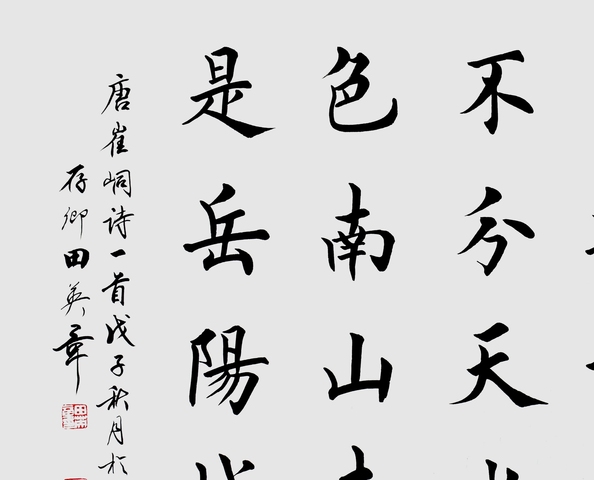 不分天
色南山
是岳陽
唐崔峒诗一首戊子秋月於
存卿田英章